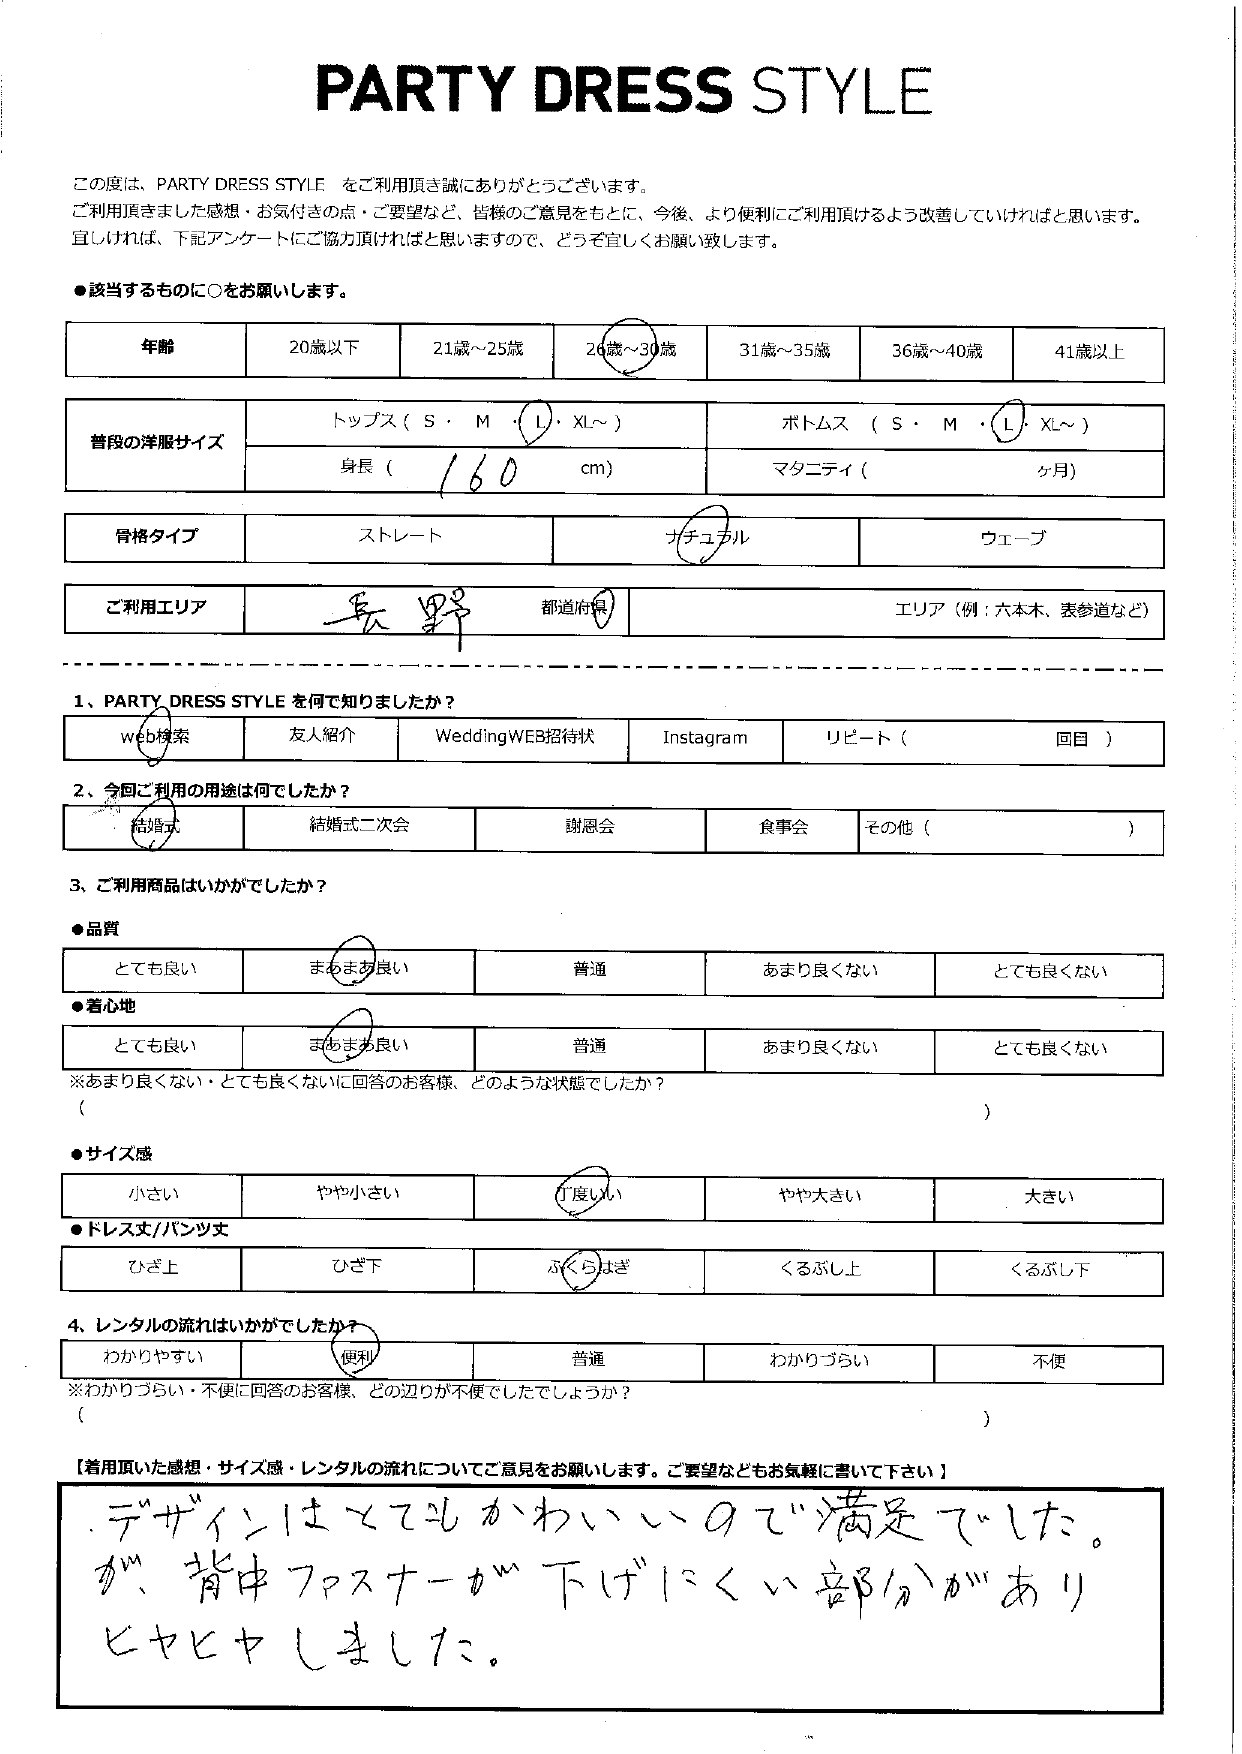 PARTY DRESS STYLE
この度は、PARTY DRESS STYLE をご利用頂き誠にありがとうございます。
ご利用頂きました感想・お気付きの点・ご要望など、皆様のご意見をもとに、今後、より便利にご利用頂けるよう改善していければと思います。
宜しければ、下記アンケートにご協力頂ければと思いますので、どうぞ宜しくお願い致します。
●該当するものに○をお願いします。
年齢 20歳以下 21歳～25歳 26歳～30歳 31歳～35歳 36歳～40歳 41歳以上
普段の洋服サイズ トップス ( S ・ M ・ L ・ XL～ ) ボトムス ( S ・ M ・ L ・ XL～ )
身長 ( 160 cm) マタニティ ( ヶ月)
骨格タイプ ストレート ナチュラル ウェーブ
ご利用エリア 長野 都道府県 エリア（例：六本木、表参道など）
1、PARTY DRESS STYLE を何で知りましたか？
web検索 友人紹介 WeddingWEB招待状 Instagram リピート（ 回目 ）
2、今回ご利用の用途は何でしたか？
結婚式 結婚式二次会 謝恩会 食事会 その他（ ）
3、ご利用商品はいかがでしたか？
●品質
とても良い まあまあ良い 普通 あまり良くない とても良くない
●着心地
とても良い まあまあ良い 普通 あまり良くない とても良くない
※あまり良くない・とても良くないに回答のお客様、どのような状態でしたか？
（ ）
●サイズ感
小さい やや小さい 丁度いい やや大きい 大きい
●ドレス丈/パンツ丈
ひざ上 ひざ下 ふくらはぎ くるぶし上 くるぶし下
4、レンタルの流れはいかがでしたか？
わかりやすい 便利 普通 わかりづらい 不便
※わかりづらい・不便に回答のお客様、どの辺りが不便でしたでしょうか？
（ ）
【着用頂いた感想・サイズ感・レンタルの流れについてご意見をお願いします。ご要望などもお気軽に書いて下さい 】
デザインはとてもかわいいので満足でした。
が、背中ファスナーが下げにくい部分があり
ヒヤヒヤしました。